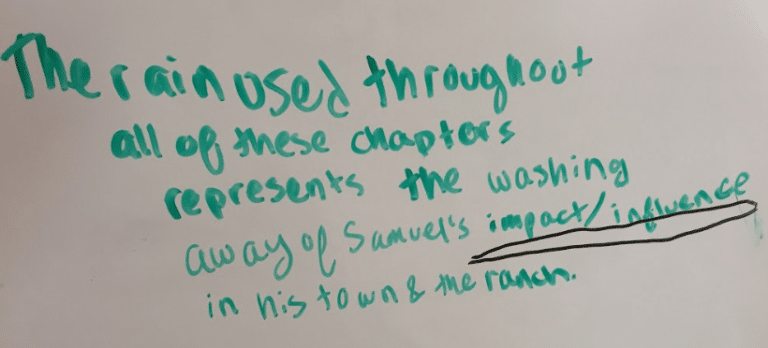 The rain used throughout
all of these chapters
represents the washing
away of Samuel's impact/influence
in his town & the ranch.